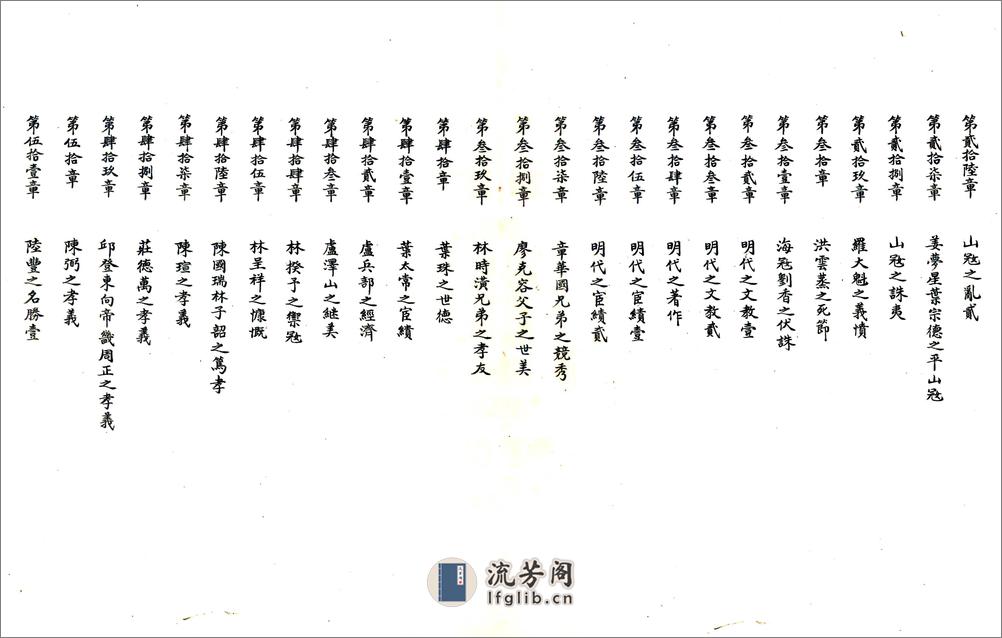 第貳拾陸章 山冦之亂貳
第貳拾柒章 姜夢星葉宗德之平山冦
第貳拾捌章 山冦之誅夷
第貳拾玖章 羅大魁之義憤
第叁拾章 洪雲蒸之死節
第叁拾壹章 海冦劉香之伏誅
第叁拾貳章 明代之文教壹
第叁拾叁章 明代之文教貳
第叁拾肆章 明代之著作
第叁拾伍章 明代之宦績壹
第叁拾陸章 明代之宦績貳
第叁拾柒章 章華國兄弟之競秀
第叁拾捌章 廖克容父子之世美
第叁拾玖章 林時潢兄弟之孝友
第肆拾章 葉珠之世德
第肆拾壹章 葉太常之宦績
第肆拾貳章 盧兵部之經濟
第肆拾叁章 盧澤山之繼美
第肆拾肆章 林揆子之禦冦
第肆拾伍章 林呈祥之慷慨
第肆拾陸章 陳國瑞林子韶之篤孝
第肆拾柒章 陳瑄之孝義
第肆拾捌章 莊德萬之孝義
第肆拾玖章 邱登東向帝畿周正之孝義
第伍拾章 陳弼之孝義
第伍拾壹章 陸豐之名勝壹
流芳阁
lfglib.cn